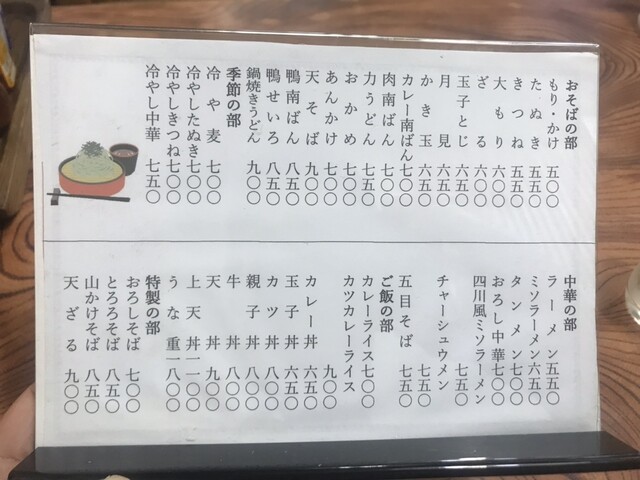 おそばの部
もり・かけ 五〇〇
たぬき 五五〇
きつね 五五〇
大もり 六〇〇
ざる 六〇〇
玉子とじ 六五〇
月見 六五〇
かき玉 六五〇
カレー南ばん 七〇〇
肉南ばん 七〇〇
力うどん 七五〇
おかめ 七〇〇
あんかけ 七〇〇
天そば 九〇〇
鴨南ばん 八五〇
鴨せいろ 八五〇
鍋焼きうどん 九〇〇
季節の部
冷や麦 七〇〇
冷やしたぬき 七〇〇
冷やしきつね 七〇〇
冷やし中華 七五〇
中華の部
ラーメン 五五〇
ミソラーメン 六五〇
タンメン 七〇〇
おろし中華 七〇〇
四川風ミソラーメン
七五〇
チャーシュウメン
七五〇
五目そば 七五〇
ご飯の部
カレーライス 七〇〇
カツカレーライス
九〇〇
カレー丼 六五〇
玉子丼 六五〇
カツ丼 八〇〇
親子丼 八〇〇
牛丼 八〇〇
天丼 九〇〇
上天丼 一一〇〇
うな重 一八〇〇
特製の部
おろしそば 七〇〇
とろろそば 八五〇
山かけそば 八五〇
天ざる 九〇〇